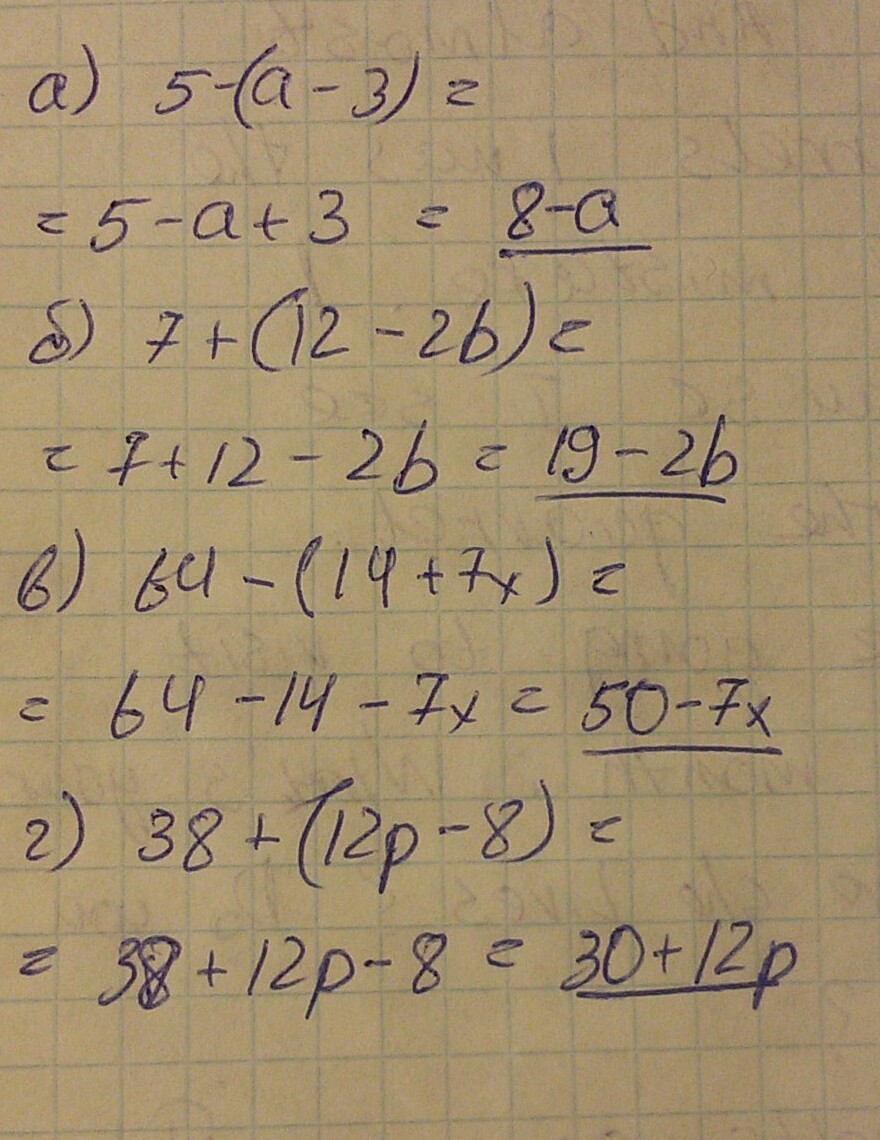 а) 5-(a-3)=
=5-a+3 = 8-a
б) 7+(12-2b)=
=7+12-2b=19-2b
в) 64-(14+7x)=
= 64-14-7x=50-7x
г) 38+(12p-8)=
= 38+12p-8=30+12p